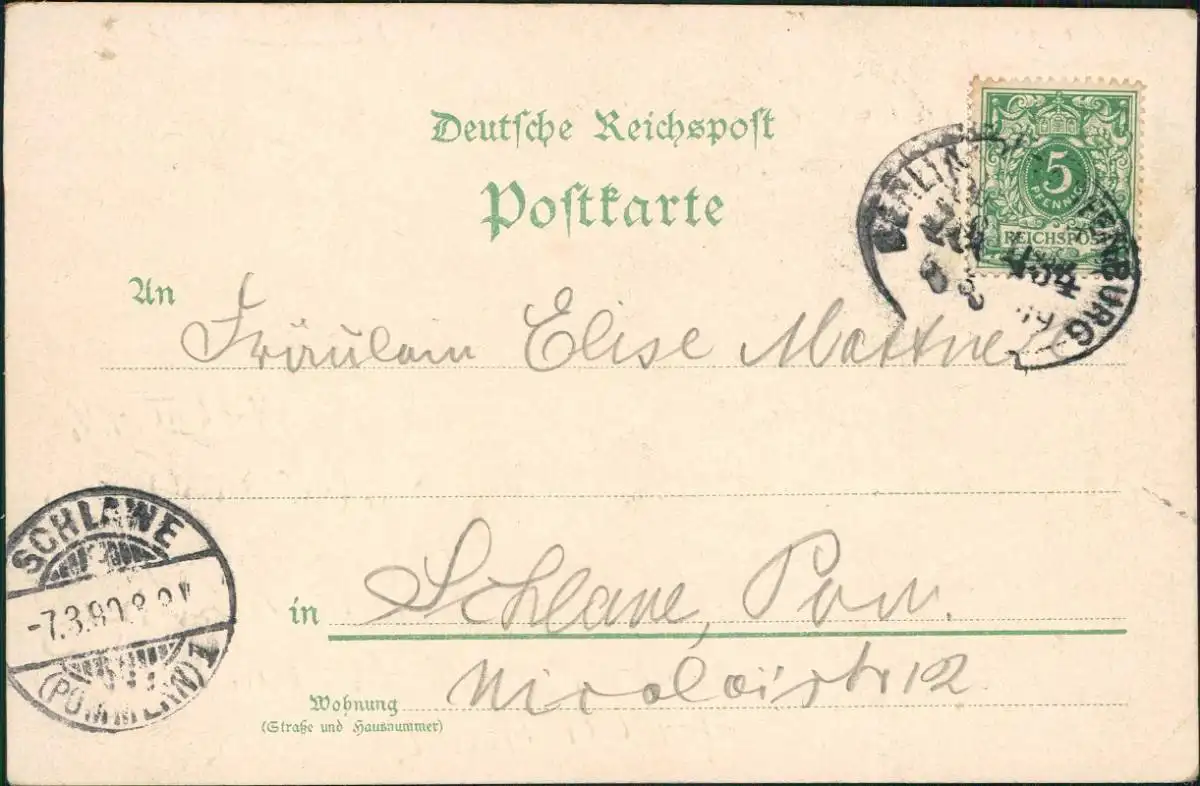 Deutsche Reichspost
Postkarte
5
PFENNIG
REICHSPOST
BERLIN
134
An
Fräulein Elise Mattne
SCHLAWE
-7.3.99.8-9V
(POMMERN) 1
in Schlawe, Pom.
Nicolaistr 12
Wohnung
(Straße und Hausnummer)